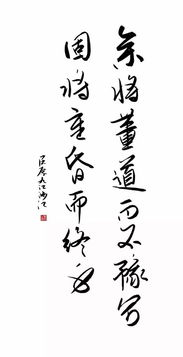 余将董道而不豫兮
固将重昏而终身
屈原